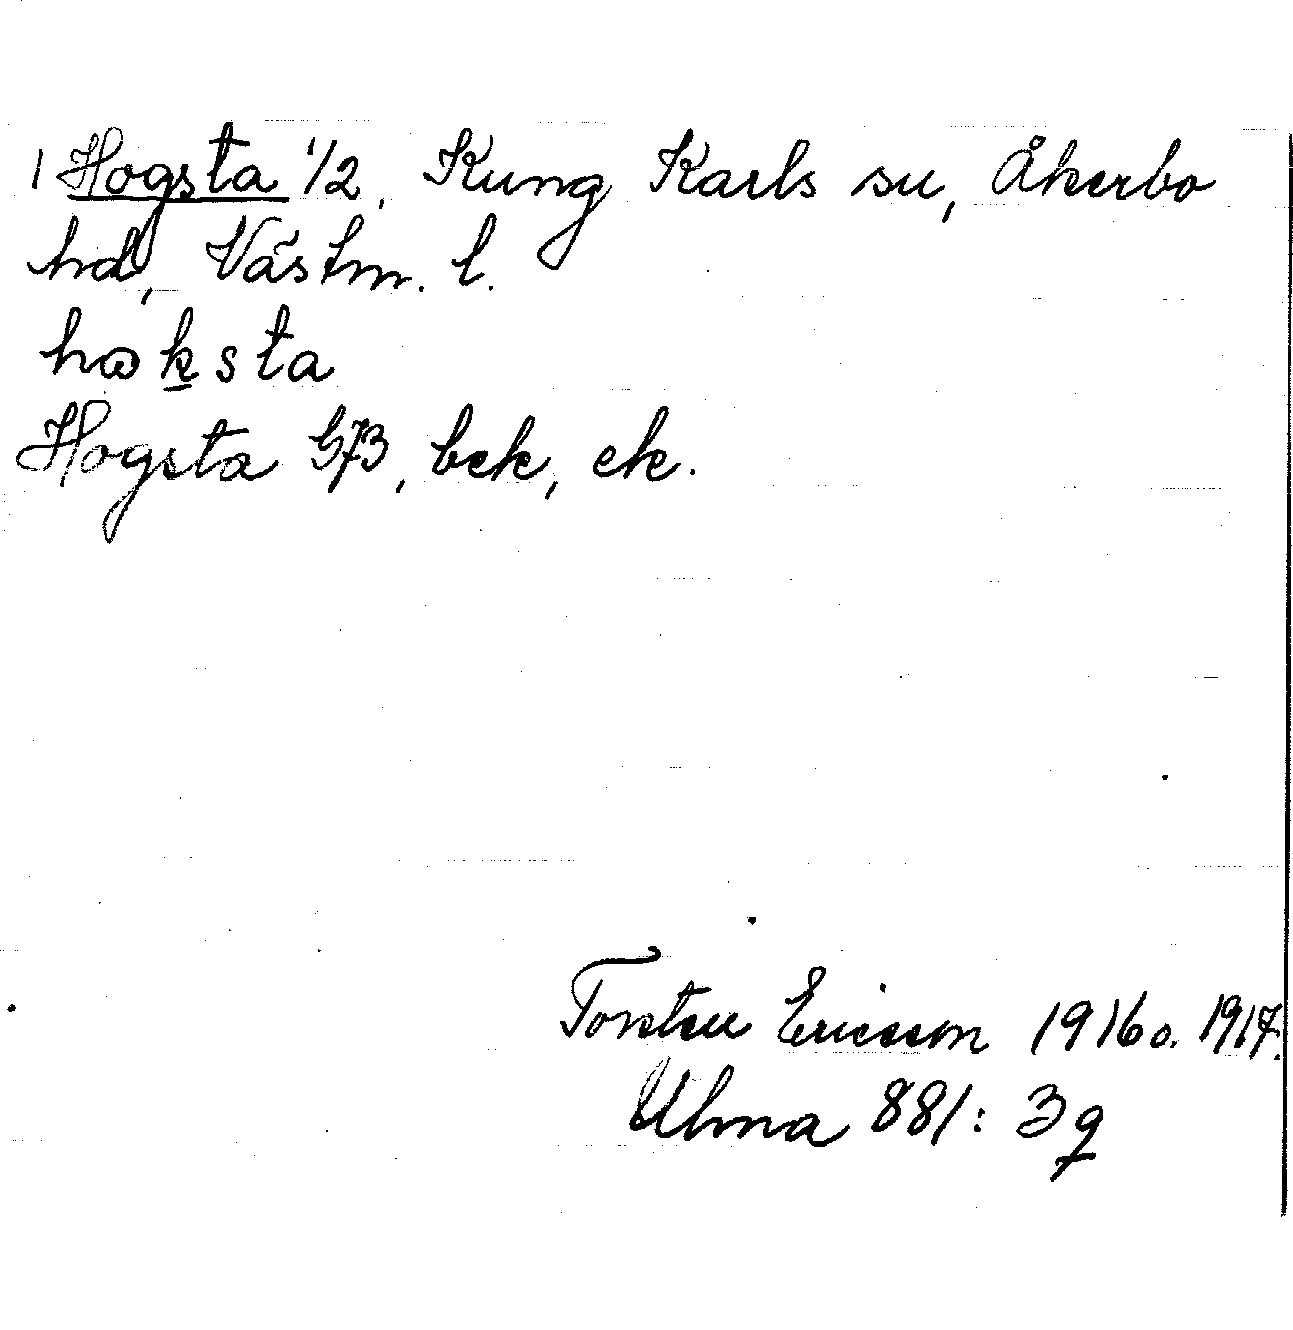 1 Hogsta 1/2, Kung Karls sn, Åkerbo
hd, Västm. l.
hoksta
Hogsta 573, bek, ek.
Torsten Ericsson 1916 o. 1917.
Ulma 881: 3 q